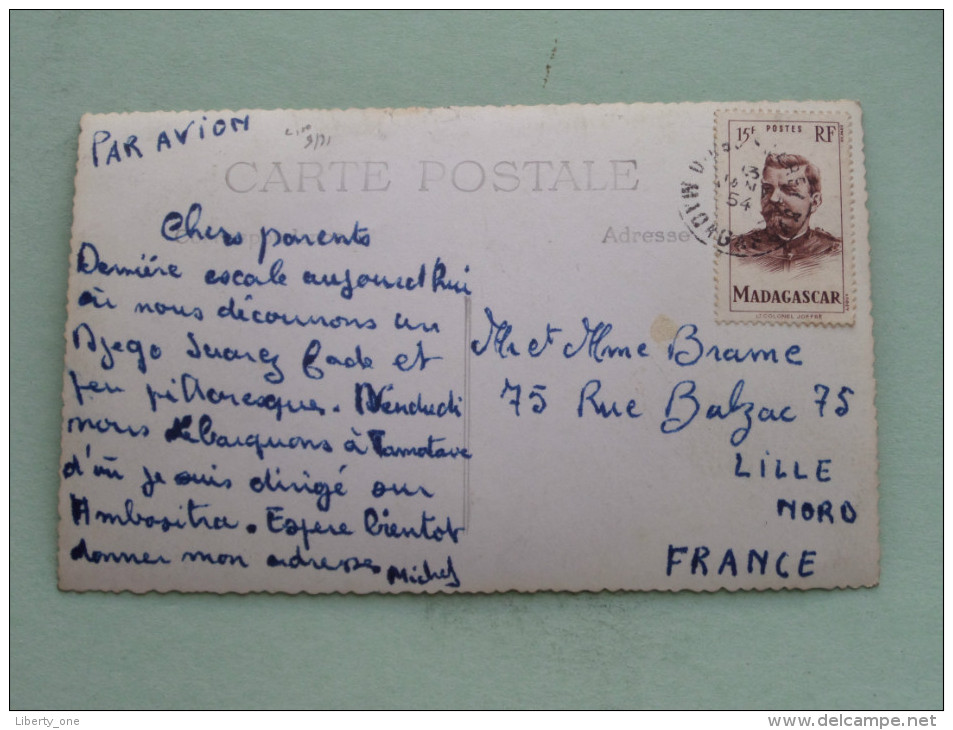 PAR AVION
CARTE POSTALE
Chers parents
Adresse
Dernière escale aujourd'hui
où nous découvrons un
Djego Suarez fade et
peu pittoresque. Vendredi
nous débarquons à Tamatave
d'où je suis dirigé sur
Ambositra. Espère bientot
donner mon adresse
Michel
15F POSTES RF
MADAGASCAR
LT COLONEL JOFFRE
13
54
Mr et Mme Brame
75 Rue Balzac 75
LILLE
NORD
FRANCE
Liberty_one
www.delcampe.net